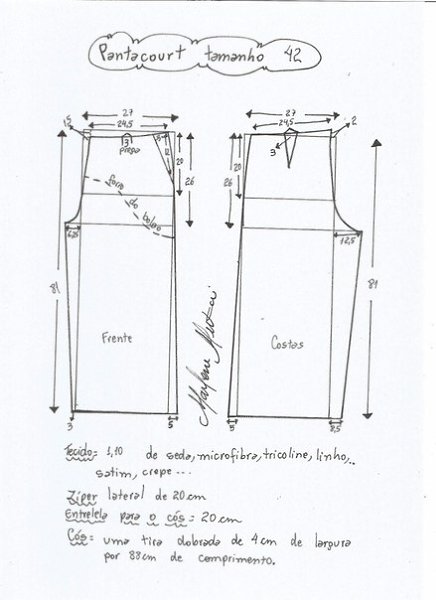 Pantacourt tamanho 42
27
24,5
1,5
3
prega
20
26
forro
do
bolso
81
6,5
Frente
3
5
27
24,5
2
3
20
26
12,5
81
Costas
5
8,5
Marlene Mukai
Tecido: 1,10 de seda, microfibra, tricoline, linho,..
satim, crepe ...
Zíper lateral de 20 cm
Entretela para o cós: 20 cm
Cós: uma tira dobrada de 4 cm de largura
por 88 cm de comprimento.